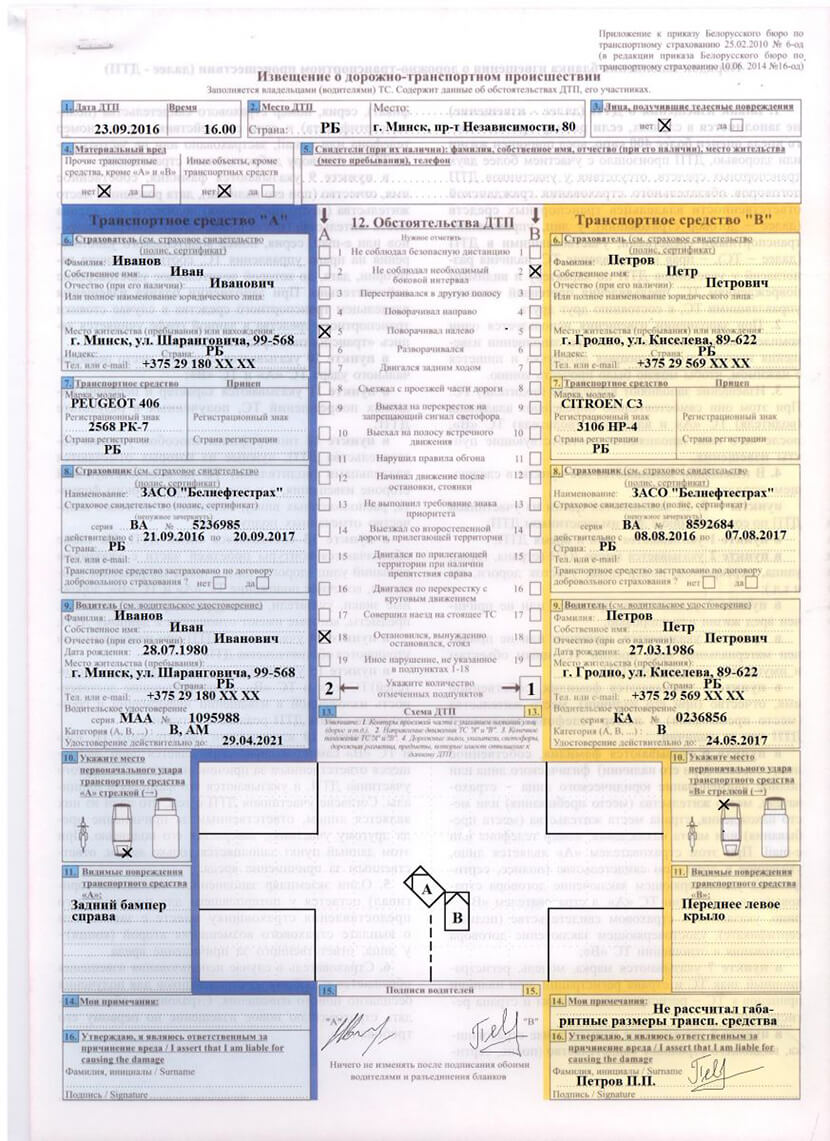 Приложение к приказу Белорусского бюро по
транспортному страхованию 25.02.2010 № 6-од
(в редакции приказа Белорусского бюро по
транспортному страхованию 10.06. 2014 №16-од)
Извещение о дорожно-транспортном происшествии
Заполняется владельцами (водителями) ТС. Содержит данные об обстоятельствах ДТП, его участниках.
1. Дата ДТП Время
23.09.2016 16.00
2. Место ДТП Место:
Страна: РБ г. Минск, пр-т Независимости, 80
3. Лица, получившие телесные повреждения
нет да
4. Материальный вред
Прочие транспортные средства, кроме «А» и «В»
нет да
Иные объекты, кроме транспортных средств
нет да
5. Свидетели (при их наличии): фамилия, собственное имя, отчество (при его наличии), место жительства
(место пребывания), телефон
Транспортное средство "А"
6. Страхователь (см. страховое свидетельство
(полис, сертификат)
Фамилия: Иванов
Собственное имя: Иван
Отчество (при его наличии): Иванович
Или полное наименование юридического лица:
Место жительства (пребывания) или нахождения:
г. Минск, ул. Шаранговича, 99-568
Индекс: Страна: РБ
Тел. или e-mail: +375 29 180 XX XX
7. Транспортное средство Прицеп
Марка, модель
PEUGEOT 406
Регистрационный знак Регистрационный знак
2568 РК-7
Страна регистрации Страна регистрации
РБ
8. Страховщик (см. страховое свидетельство
(полис, сертификат)
Наименование: ЗАСО "Белнефтестрах"
Страховое свидетельство (полис, сертификат)
(ненужное зачеркнуть)
серия ВА № 5236985
действительно с 21.09.2016 по 20.09.2017
Страна: РБ
Тел. или e-mail:
Транспортное средство застраховано по договору
добровольного страхования ? нет да
9. Водитель (см. водительское удостоверение)
Фамилия: Иванов
Собственное имя: Иван
Отчество (при его наличии): Иванович
Дата рождения: 28.07.1980
Место жительства (пребывания):
г. Минск, ул. Шаранговича, 99-568
Страна: РБ
Тел. или e-mail: +375 29 180 XX XX
Водительское удостоверение
серия МАА № 1095988
Категория (А, В, ...) : В, АМ
Удостоверение действительно до: 29.04.2021
10. Укажите место
первоначального удара
транспортного средства
«А» стрелкой (→)
11. Видимые повреждения
транспортного средства
«А»:
Задний бампер
справа
14. Мои примечания:
16. Утверждаю, я являюсь ответственным за
причинение вреда / I assert that I am liable for
causing the damage
Фамилия, инициалы / Surname
Подпись / Signature
А 12. Обстоятельства ДТП В
Нужное отметить
1 Не соблюдал безопасную дистанцию 1
2 Не соблюдал необходимый боковой интервал 2
3 Перестраивался в другую полосу 3
4 Поворачивал направо 4
5 Поворачивал налево 5
6 Разворачивался 6
7 Двигался задним ходом 7
8 Съезжал с проезжей части дороги 8
9 Выехал на перекресток на запрещающий сигнал светофора 9
10 Выехал на полосу встречного движения 10
11 Нарушил правила обгона 11
12 Начинал движение после остановки, стоянки 12
13 Не выполнил требование знака приоритета 13
14 Выезжал со второстепенной дороги, прилегающей территории 14
15 Двигался по прилегающей территории при наличии препятствия справа 15
16 Двигался по перекрестку с круговым движением 16
17 Совершил наезд на стоящее ТС 17
18 Остановился, вынужденно остановился, стоял 18
19 Иное нарушение, не указанное в подпунктах 1-18 19
2 Укажите количество отмеченных подпунктов 1
13. Схема ДТП 13.
А
В
15. Подписи водителей 15.
"А" "В"
Ничего не изменять после подписания обоими
водителями и разъединения бланков
Транспортное средство "В"
6. Страхователь (см. страховое свидетельство
(полис, сертификат)
Фамилия: Петров
Собственное имя: Петр
Отчество (при его наличии): Петрович
Или полное наименование юридического лица:
Место жительства (пребывания) или нахождения:
г. Гродно, ул. Киселева, 89-622
Индекс: Страна: РБ
Тел. или e-mail: +375 29 569 XX XX
7. Транспортное средство Прицеп
Марка, модель
CITROEN C3
Регистрационный знак Регистрационный знак
3106 НР-4
Страна регистрации Страна регистрации
РБ
8. Страховщик (см. страховое свидетельство
(полис, сертификат)
Наименование: ЗАСО "Белнефтестрах"
Страховое свидетельство (полис, сертификат)
(ненужное зачеркнуть)
серия ВА № 8592684
действительно с 08.08.2016 по 07.08.2017
Страна: РБ
Тел. или e-mail:
Транспортное средство застраховано по договору
добровольного страхования ? нет да
9. Водитель (см. водительское удостоверение)
Фамилия: Петров
Собственное имя: Петр
Отчество (при его наличии): Петрович
Дата рождения: 27.03.1986
Место жительства (пребывания):
г. Гродно, ул. Киселева, 89-622
Страна: РБ
Тел. или e-mail: +375 29 569 XX XX
Водительское удостоверение
серия КА № 0236856
Категория (А, В, ...) : В
Удостоверение действительно до: 24.05.2017
10. Укажите место
первоначального удара
транспортного средства
«В» стрелкой (→)
11. Видимые повреждения
транспортного средства
«В»:
Переднее левое
крыло
14. Мои примечания: Не рассчитал габа-
ритные размеры трансп. средства
16. Утверждаю, я являюсь ответственным за
причинение вреда / I assert that I am liable for
causing the damage
Фамилия, инициалы / Surname
Петров П.П.
Подпись / Signature